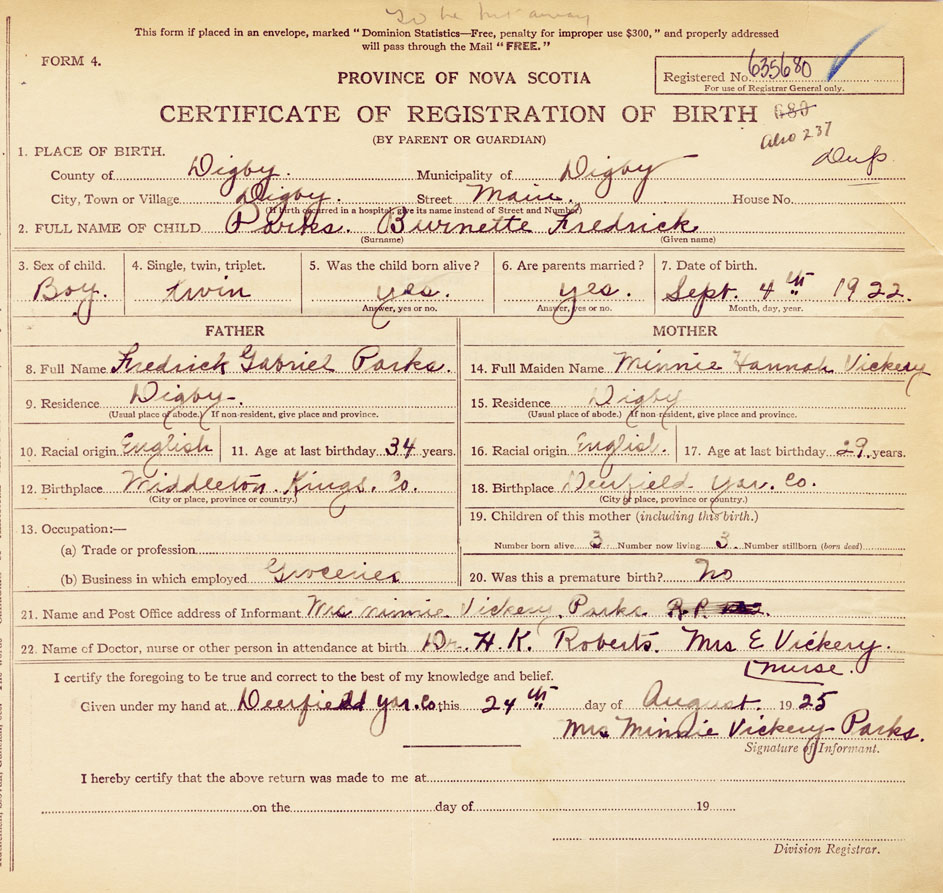 To be put away
This form if placed in an envelope, marked "Dominion Statistics—Free, penalty for improper use $300," and properly addressed
will pass through the Mail "FREE."
FORM 4.
Registered No. 635680
For use of Registrar General only.
PROVINCE OF NOVA SCOTIA
CERTIFICATE OF REGISTRATION OF BIRTH 680
(BY PARENT OR GUARDIAN)
Also 237
Dup
1. PLACE OF BIRTH.
County of Digby. Municipality of Digby
City, Town or Village Digby. Street Main. House No.
(If birth occurred in a hospital, give its name instead of Street and Number)
2. FULL NAME OF CHILD Parks. Burnette Fredrick
(Surname) (Given name)
3. Sex of child. 4. Single, twin, triplet. 5. Was the child born alive? 6. Are parents married? 7. Date of birth.
Boy. twin yes. yes. Sept. 4th 1922.
Answer, yes or no. Answer, yes or no. Month, day, year.
FATHER MOTHER
8. Full Name Fredrick Gabriel Parks. 14. Full Maiden Name Minnie Hannah Vickery
9. Residence Digby. 15. Residence Digby
(Usual place of abode.) (If non-resident, give place and province. (Usual place of abode.) (If non-resident, give place and province.
10. Racial origin English 11. Age at last birthday 34 years. 16. Racial origin English. 17. Age at last birthday 29 years.
12. Birthplace Middleton. Kings. Co. 18. Birthplace Deerfield Yar. Co.
(City or place, province or country.) (City or place, province or country.)
13. Occupation:— 19. Children of this mother (including this birth.)
(a) Trade or profession Number born alive 3 Number now living 3. Number stillborn (born dead)
(b) Business in which employed Groceries 20. Was this a premature birth? No
21. Name and Post Office address of Informant Mrs Minnie Vickery Parks.
22. Name of Doctor, nurse or other person in attendance at birth Dr. H. K. Roberts. Mrs E Vickery.
nurse.
I certify the foregoing to be true and correct to the best of my knowledge and belief.
Given under my hand at Deerfield Yar. Co. this 24th day of August. 1925
Mrs Minnie Vickery Parks.
Signature of Informant.
I hereby certify that the above return was made to me at
on the day of 19
Division Registrar.